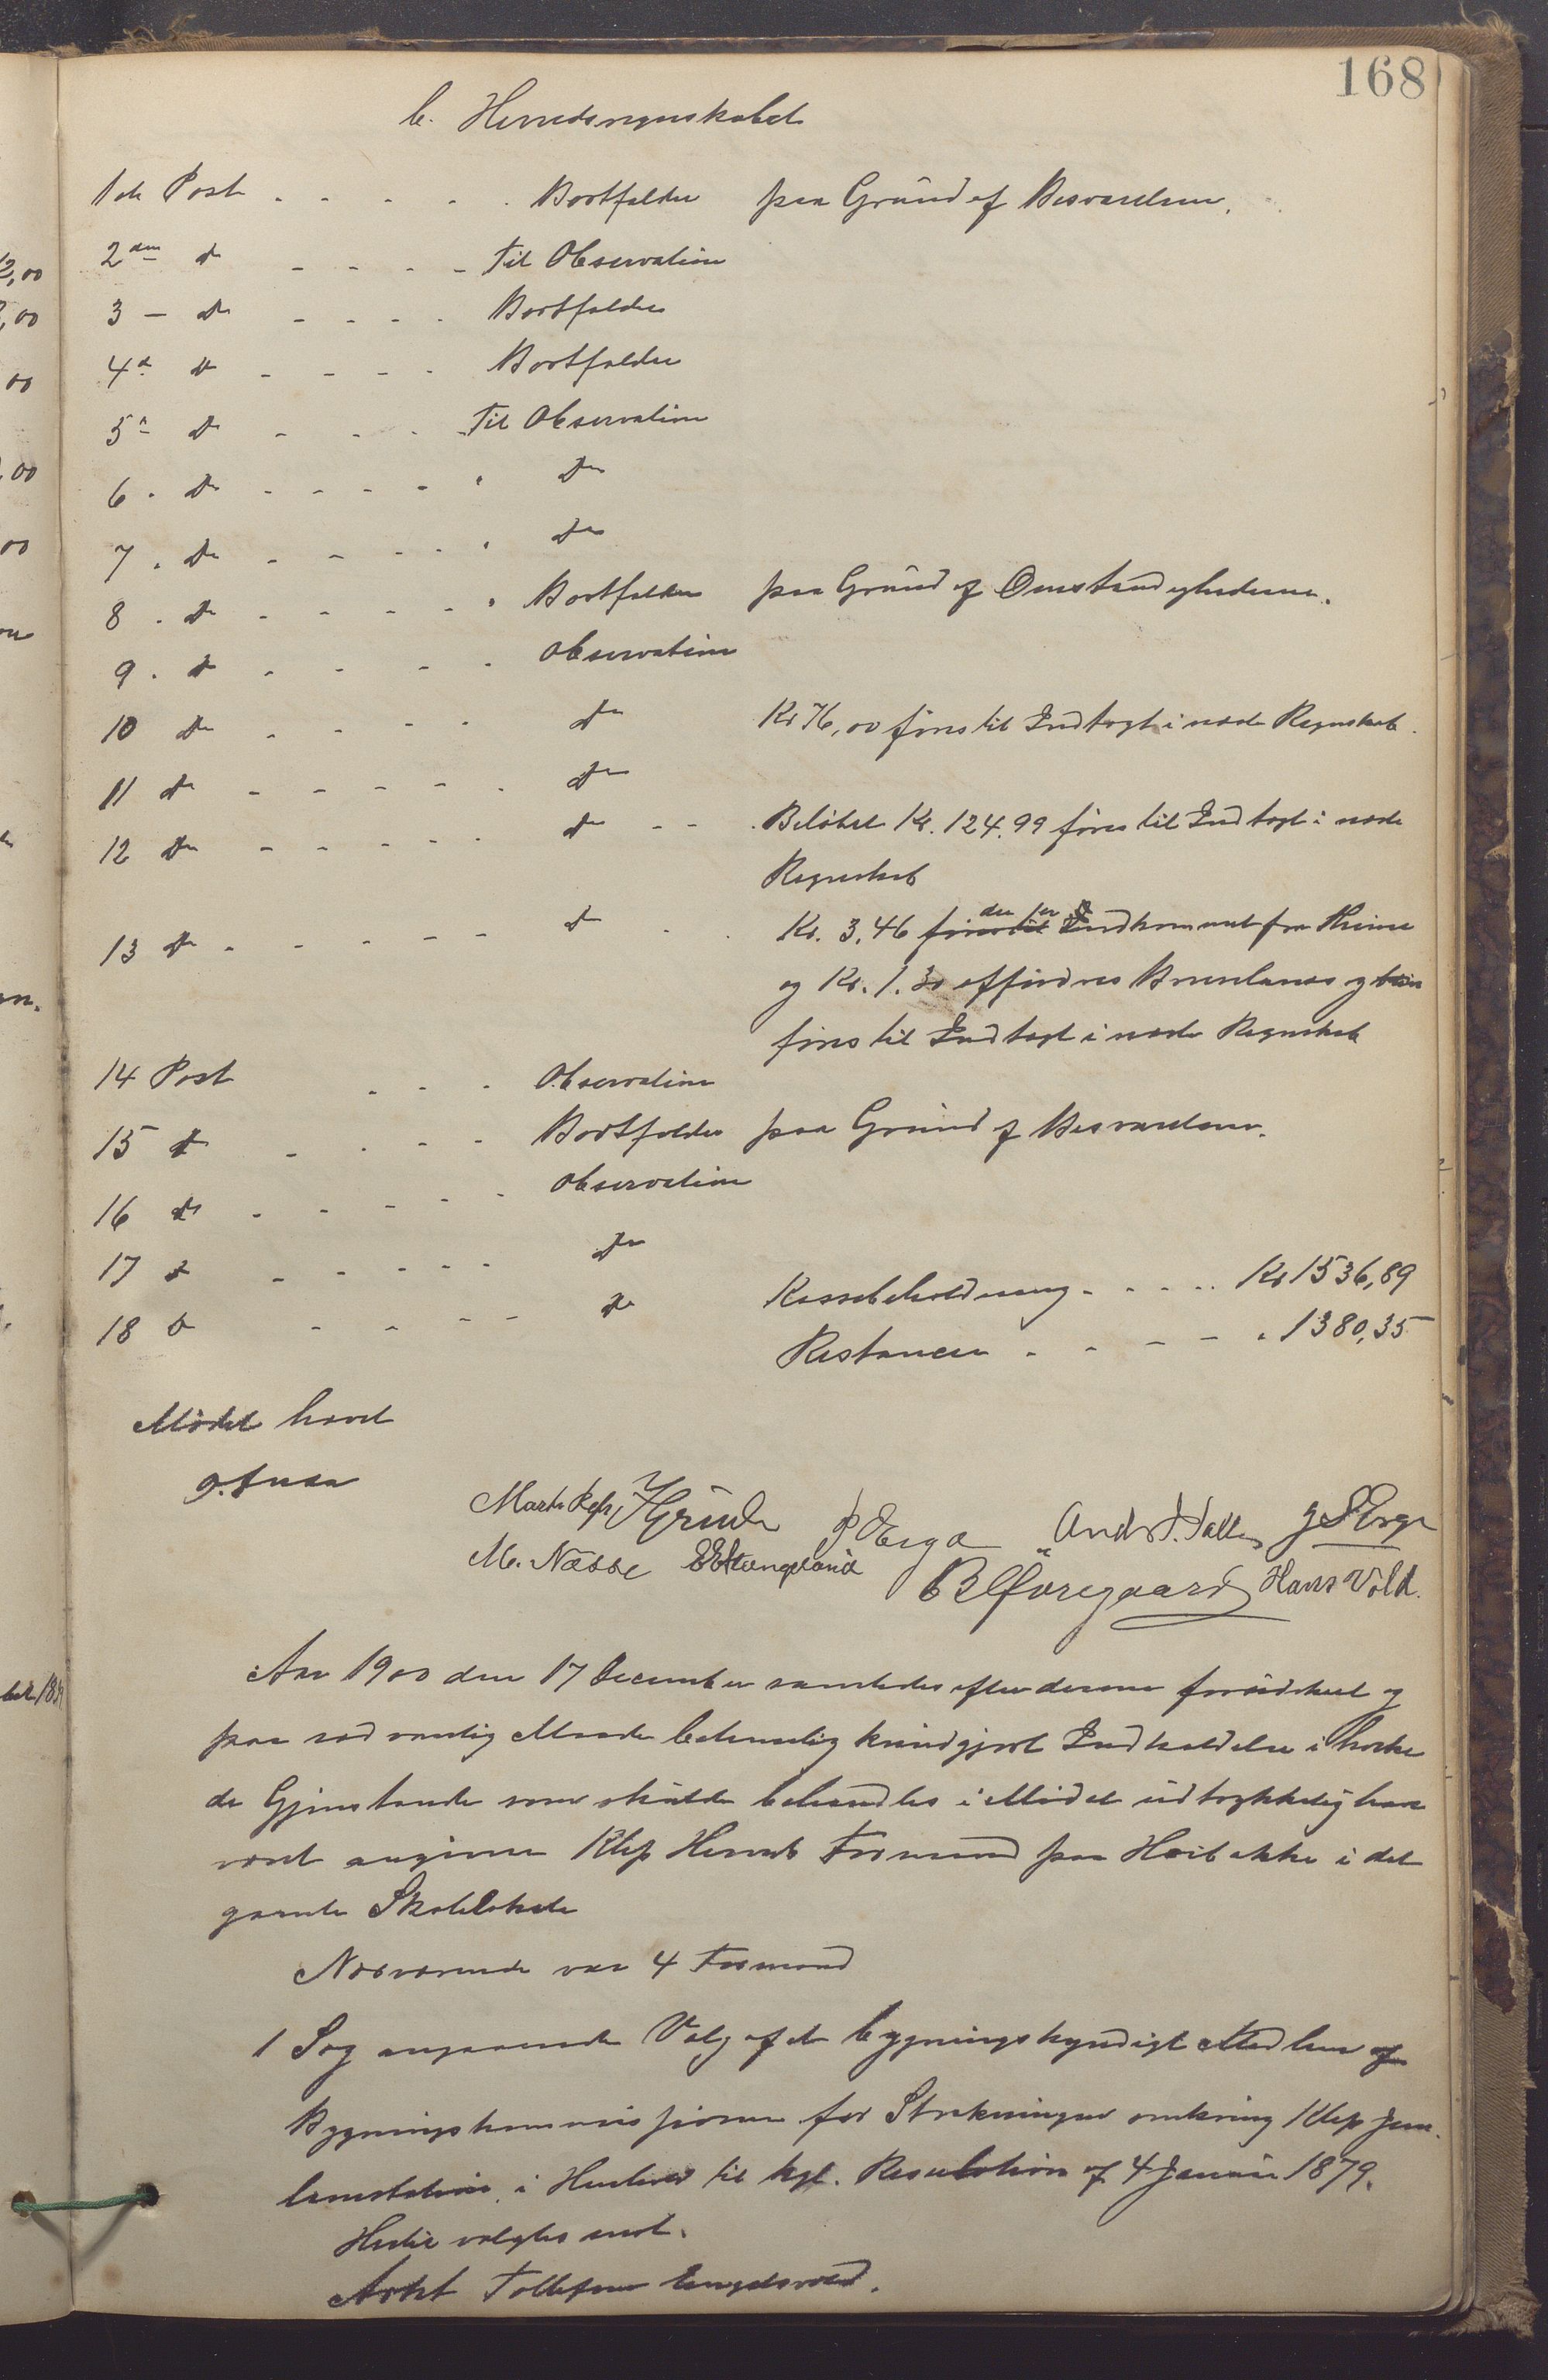 168
b. Herredsregnskabet
1ste Post . . . . . Bortfalder paa Grund af Besvarelsen.
2den do - - - - Til Observation
3 - do - - - - Bortfalder
4d do - - - - Bortfalder
5" do - - - Til Observation
6 . do - - - - " do
7 . do - - - - " do
8 . do - - - - " Bortfalder paa Grund af Omstændighederne.
9 . do - - - - Observation
10 do - - - - do Kr 76,00 föres til Indtægt i næste Regnskab.
11 do - - - - - do
12 do - - - - - do - - . Beløbet Kr. 124.99 föres til Indtægt i næste
Regnskab
13 do - - - - - do - . Kr. 3,46 föres til der er Indkommet fra Thime
og Kr. 1.30 affordres Brunlanes og
föres til Indtægt i næste Regnskab
14 Post - - - Observation
15 do - - - - Bortfalder paa Grund af Besvarelsen.
16 do - - - - - Observation
17 do - - - - - do
Kassebeholdning - - - - Kr 1536,89
18 do - - - - do
Restancer - - - - " 1380,35
Mødet hævet
g. Fuaa
Marte Pers. Grude P Erga Andr. T. Salte J S Erga
M. Næsse E E Stangeland B Horegaard Hans Vold.
Aar 1900 den 17 December samledes efter derom forudskeet og
paa sædvanlig Maade betimelig kundgjort Indkaldelse i hvilke
de Gjenstande som skulde behandles i Mødet udtrykkelig have
været angivne Klep Herreds Formænd paa Hoibakke i det
gamle Skolelokale
Nærværende var 4 Formænd
1 Sag angaaende Valg af et bygningskyndigt Medlem af
Bygningskommissionen for Strækningen omkring Klep Jern
banestation i Henhold til kgl. Resolution af 4 Januar 1879.
Hertil valgtes enst.
Askt Tollefsen Engelsvold.